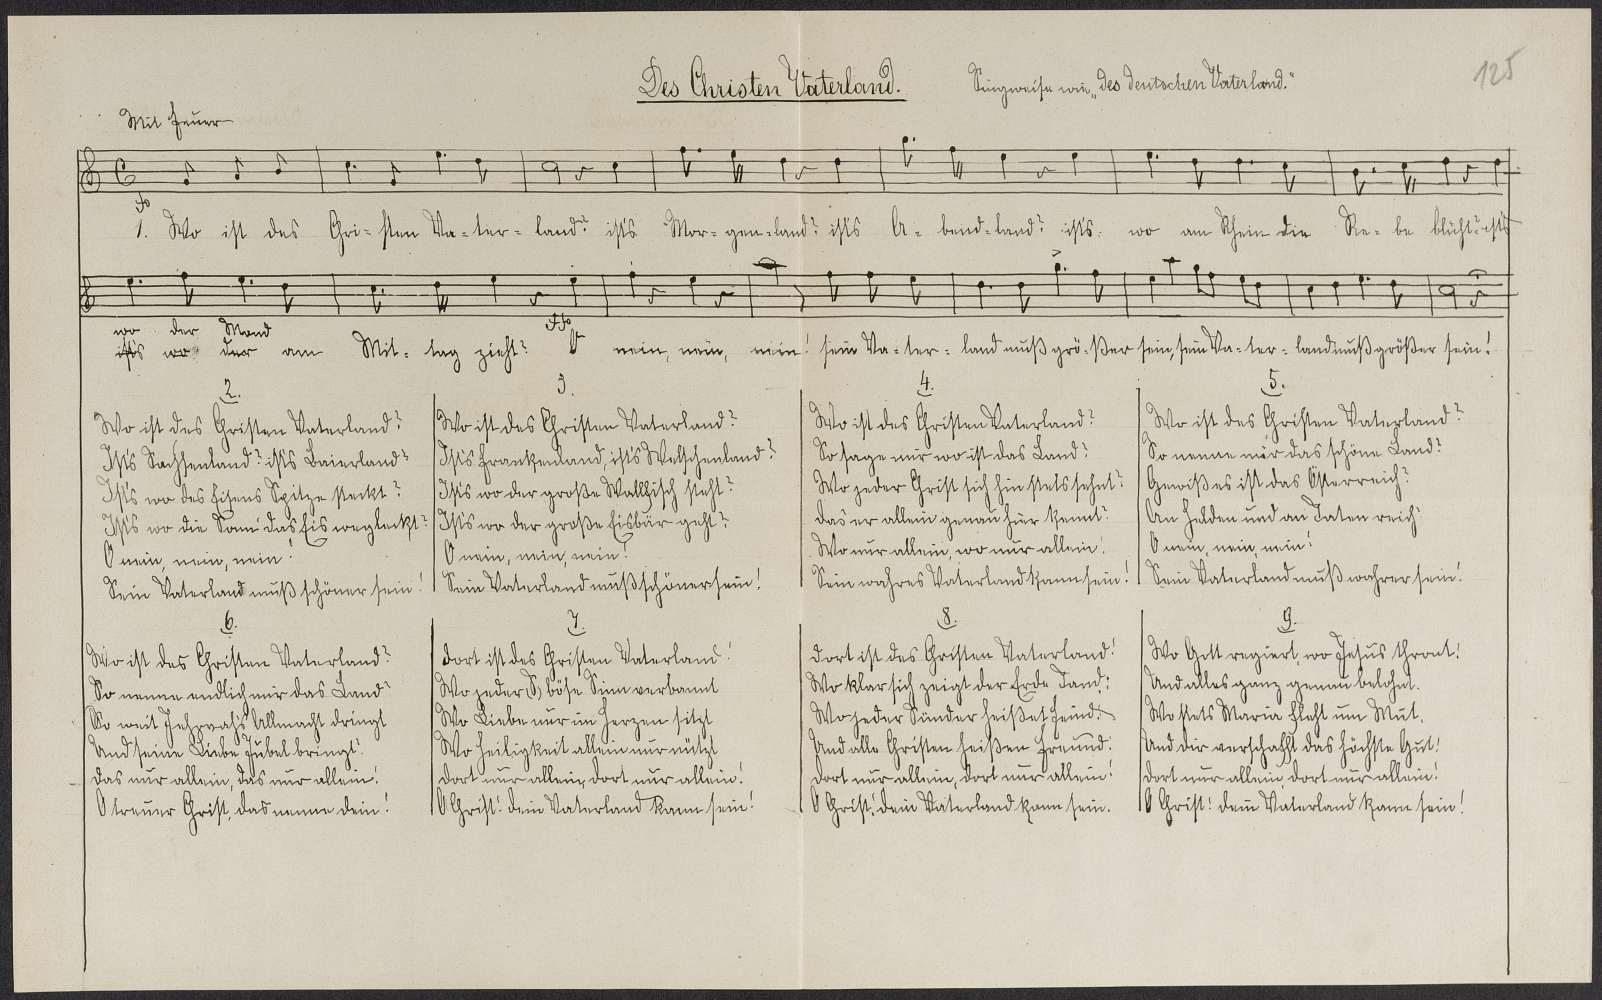 Des Christen Vaterland.
Singweise wie „des deutschen Vaterland."
125
Mit Feuer
1. Wo ist des Chri-sten Va-ter-land? ist's Mor-gen-land? ist's A-bend-land? ist's wo am Rhein die Re-be blüht? ist's
wo der Mond
ist's wo der am Mit-tag zieht? O nein, nein, nein! sein Va-ter-land muß grö-ßer sein, sein Va-ter-land muß größer sein!
2.
Wo ist des Christen Vaterland?
Ist's Sachsenland? ist's Baierland?
Ist's wo des Eisens Spitze steckt?
Ist's wo die Sonn' das Eis wegleckt?
O nein, nein, nein!
Sein Vaterland muß schöner sein!
3.
Wo ist des Christen Vaterland?
Ist's Frankenland, ist's Welschenland?
Ist's wo der große Wallfisch steht?
Ist's wo der große Eisbär geht?
O nein, nein, nein!
Sein Vaterland muß schöner sein!
4.
Wo ist des Christen Vaterland?
So sage mir wo ist das Land?
Wo jeder Christ sich hin stets sehnt?
das er allein genau hier kennt?
Wo nur allein, wo nur allein!
Sein wahres Vaterland kann sein!
5.
Wo ist des Christen Vaterland?
So nenne mir das schöne Land?
Gewiß es ist das Österreich?
An Helden und an Taten reich?
O nein, nein, nein!
Sein Vaterland muß wahrer sein!
6.
Wo ist des Christen Vaterland?
So nenne endlich mir das Land?
Wo weit Jehovah's Allmacht dringt
Und seine Liebe Jubel bringt?
das nur allein, das nur allein!
O treuer Christ, das nenne dein!
7.
dort ist des Christen Vaterland!
Wo jeder (S) böse Sinn verbannt
Wo Liebe nur im Herzen sitzt
Wo Heiligkeit allein nur nützt
dort nur allein, dort nur allein!
O Christ! dein Vaterland kann sein!
8.
dort ist des Christen Vaterland!
Wo klar sich zeigt der Erde Tand;
Wo jeder Sünder heißet Feind.
Und alle Christen heißen Freund.
dort nur allein, dort nur allein!
O Christ! dein Vaterland kann sein.
9.
Wo Gott regiert, wo Jesus thront!
Und alles ganz genau belohnt.
Wo stets Maria fleht um Mut,
Und dir verschafft das höchste Gut!
dort nur allein, dort nur allein!
O Christ! dein Vaterland kann sein!